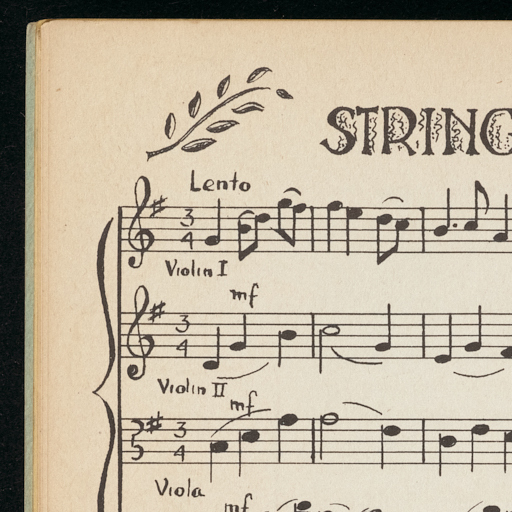 STRING
Lento
3
4
Violin I
mf
3
4
Violin II
mf
3
4
Viola
mf